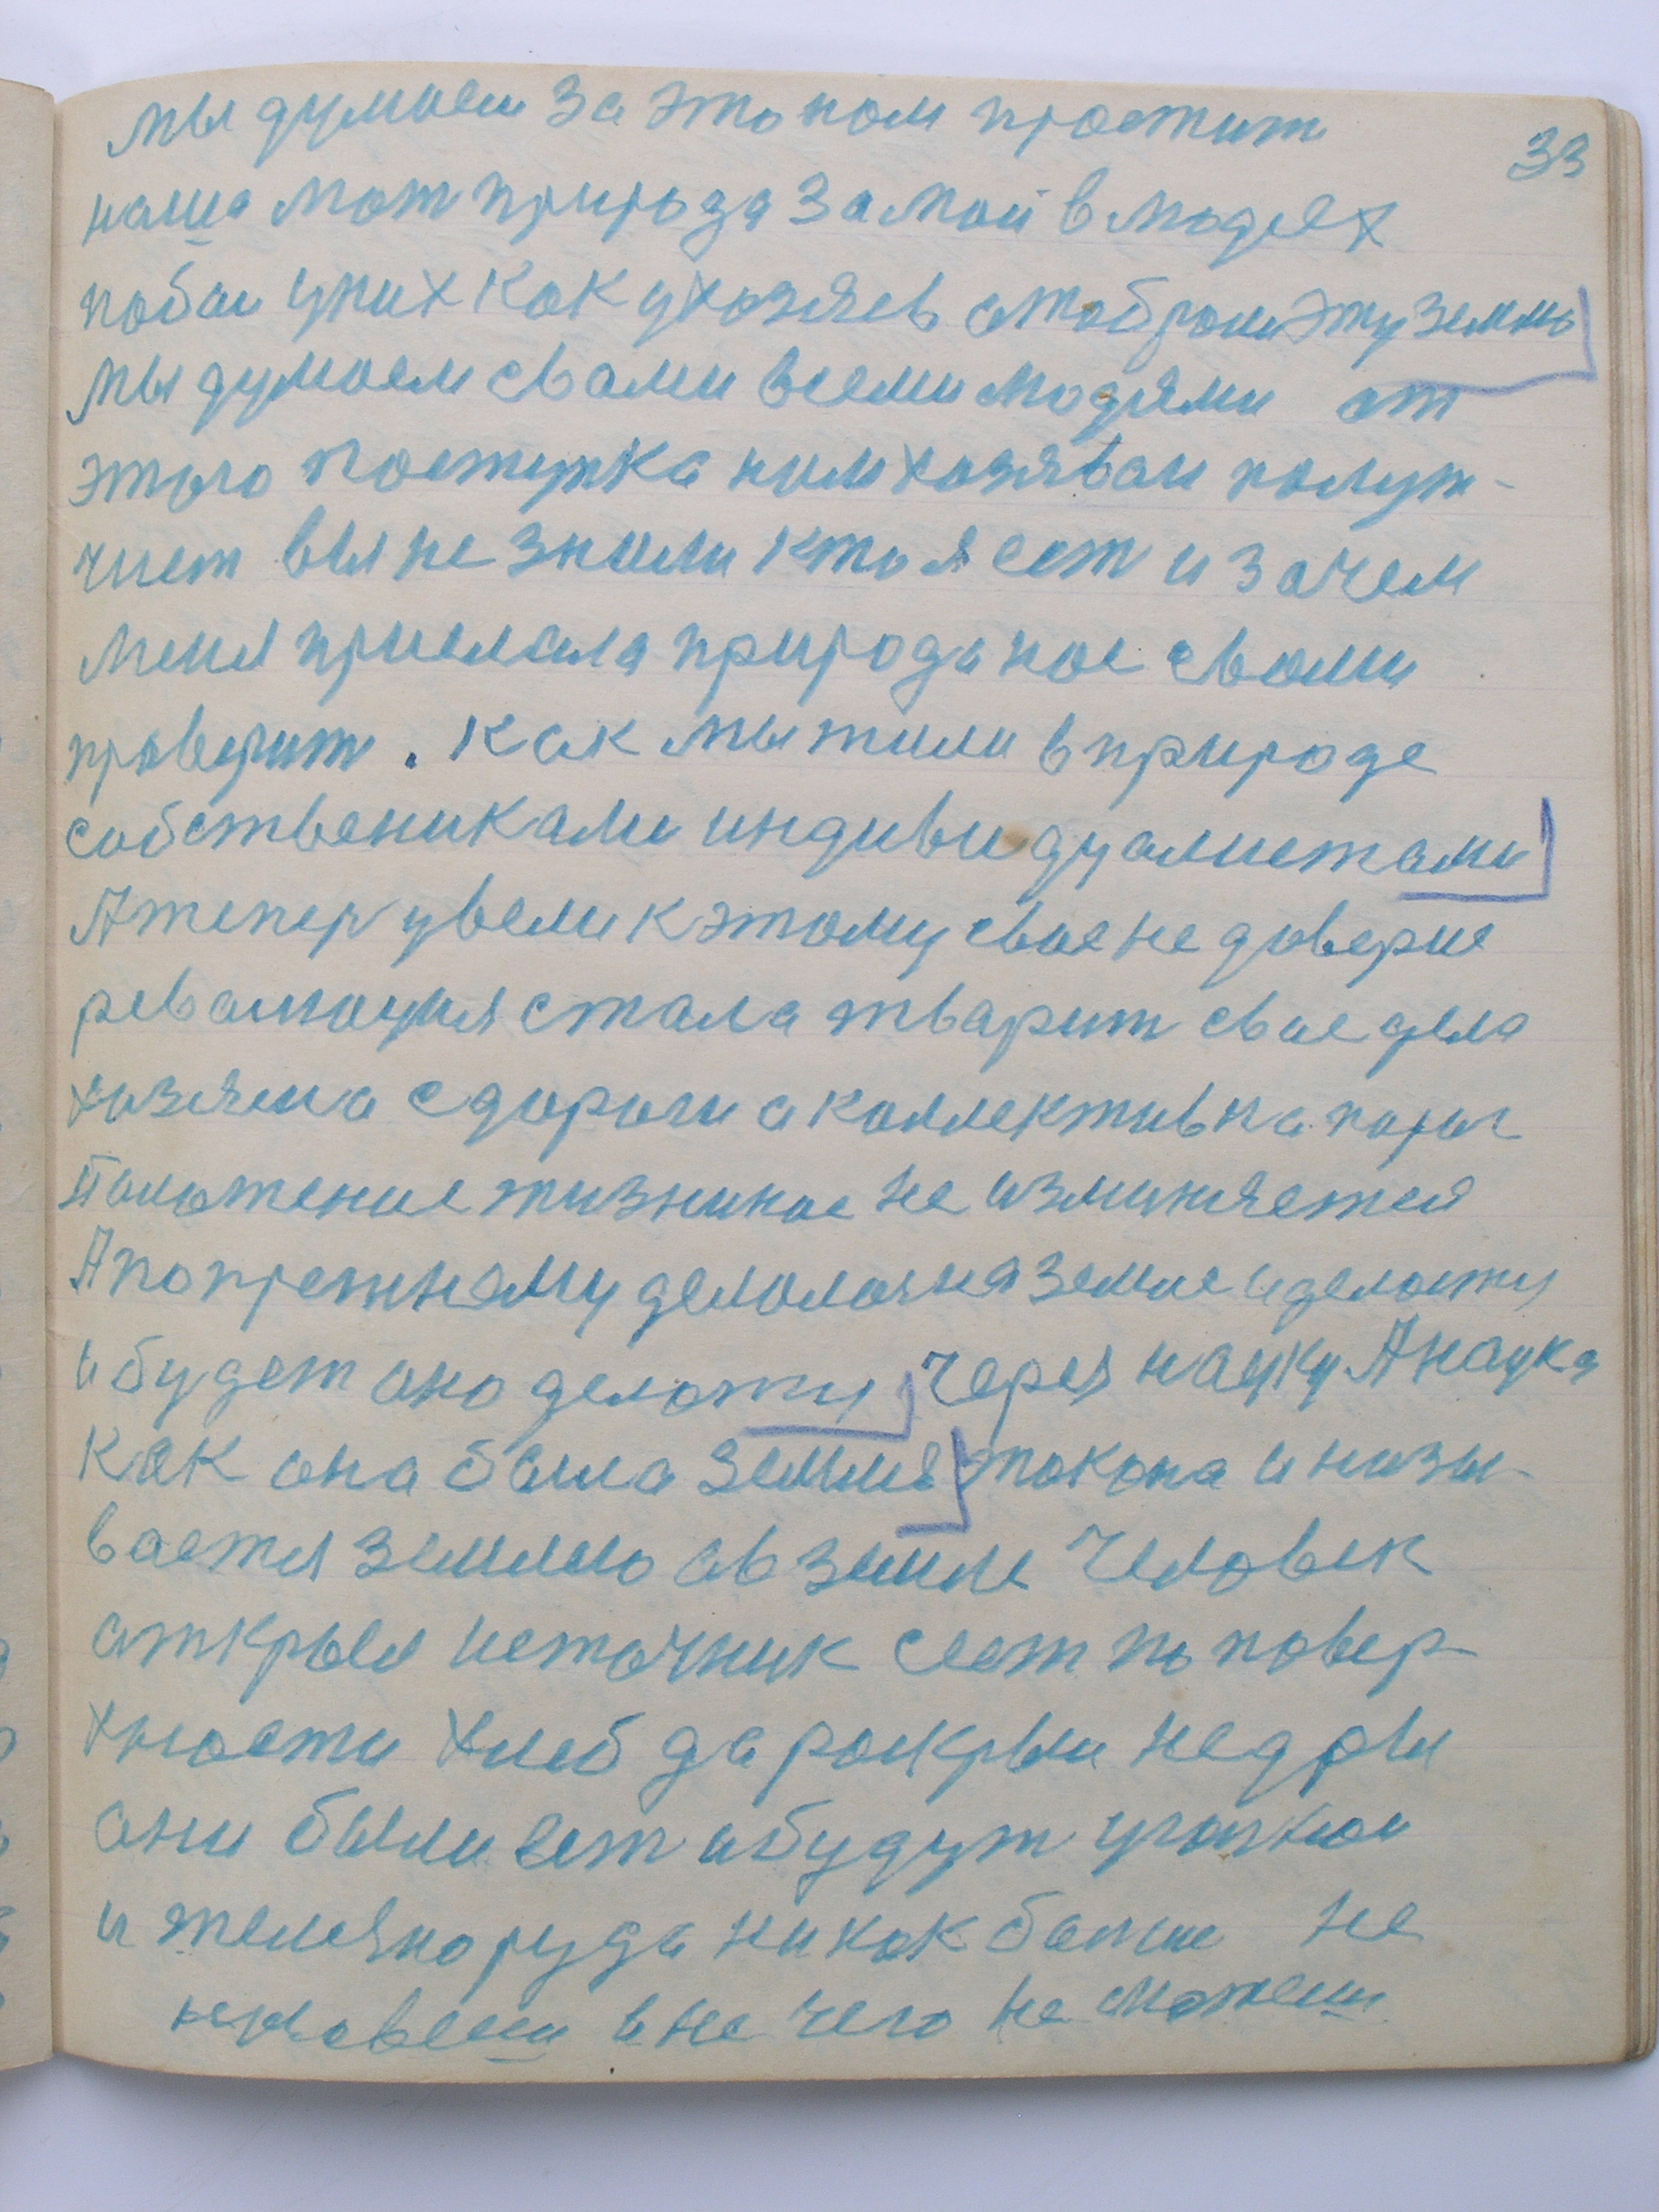 33
мы думаем за это нам простит
наша мат природа за мой в людях
у них как у хозяев отоброли эту землю
мы думаем с вами всеми людями от
этого поступка ним хозявам получ-
чает вы не знали кто я ест и зачем
меня прислала природа нас с вами
проверит. Как мы жили в природе
собствениками индивидуалистами
А тепер увели к этому свое не доверие
революция стала тварит свое дело
хозяена с дороги а коллектив на
Положение жизниное не изминяется
А по прежнему делолося на земле и делаетця
и будет оно делотця через науку А наука
как она была землия так она и назы-
вается землию а в земле человек
аткрыл источник сеет по повер-
хности хлеб да раскрыл недры
они были ест и будут уголном
и желязно руда никак болше не
назовеш и не чего не можеш